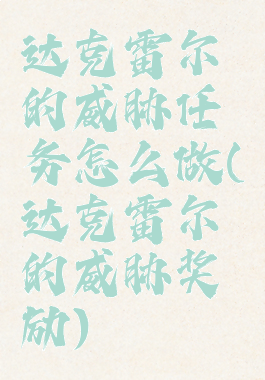 达克雷尔
的威胁任
务怎么做(
达克雷尔
的威胁奖
励)